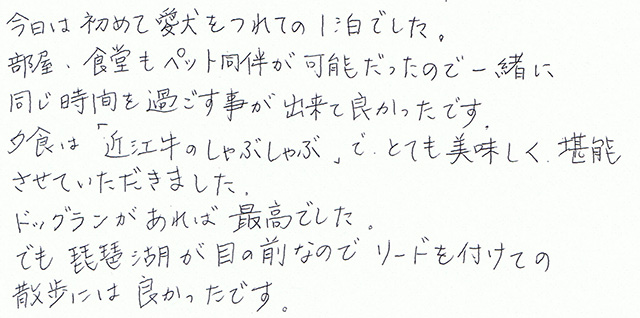 今日は初めて愛犬をつれての1泊でした。
部屋、食堂もペット同伴が可能だったので一緒に
同じ時間を過ごす事が出来て良かったです。
夕食は「近江牛のしゃぶしゃぶ」で、とても美味しく、堪能
させていただきました。
ドッグランがあれば最高でした。
でも琵琶湖が目の前なのでリードを付けての
散歩には良かったです。